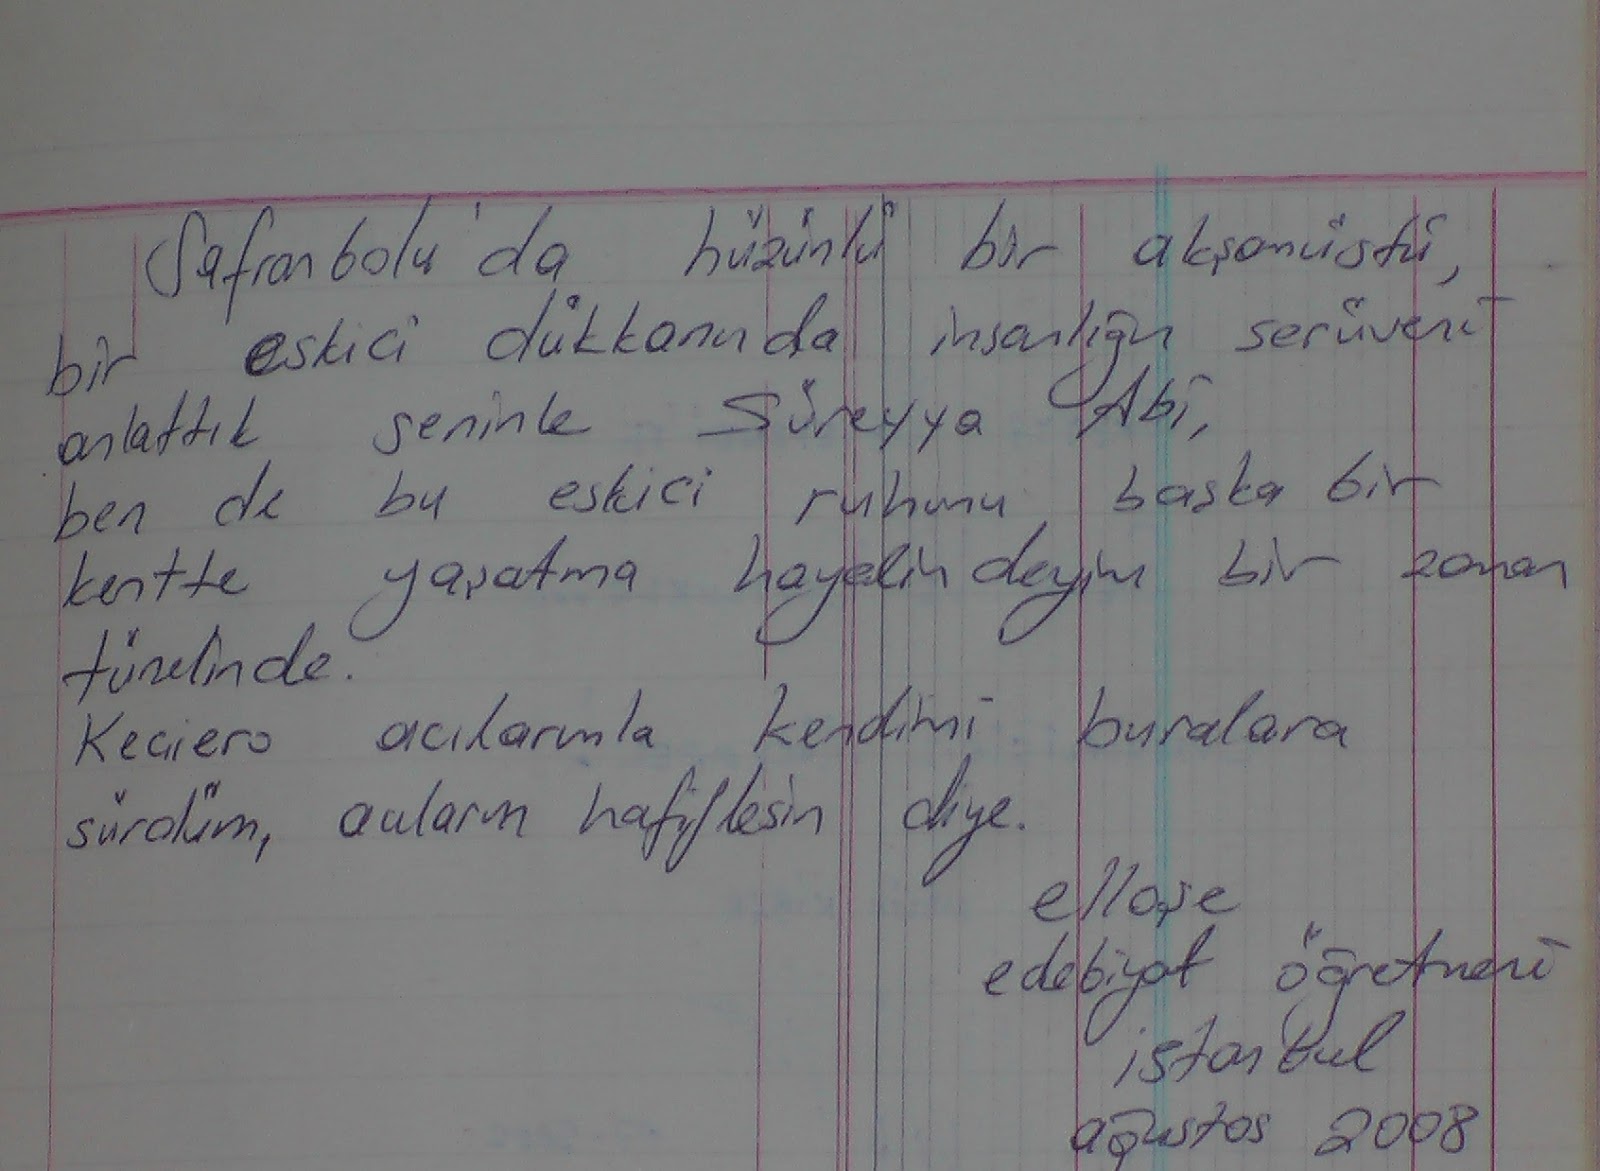 Safranbolu'da hüzünlü bir akşamüstü,
bir eskici dükkanında insanlığın serüveni
anlattık seninle Süreyya Abi,
ben de bu eskici ruhunu başka bir
kentte yaşatma hayalindeyim bir zaman
tünelinde.
acılarımla kendimi buralara
sürdüm, acılarım hafiflesin diye.
ellaşe
edebiyat öğretmeni
istanbul
ağustos 2008